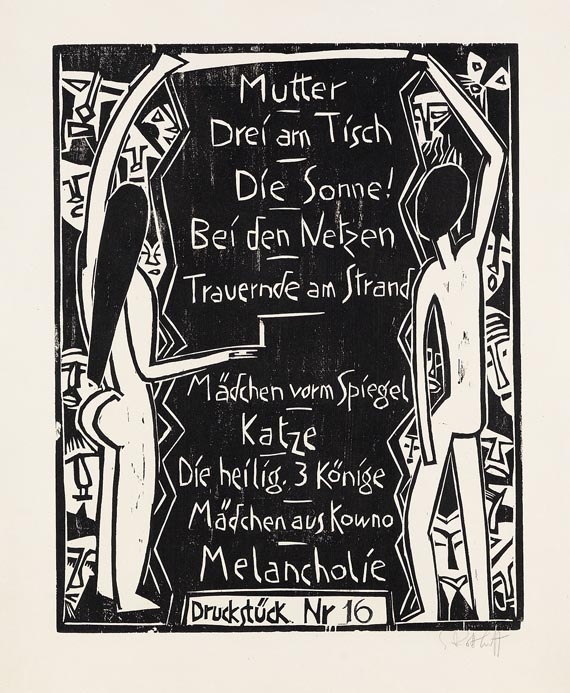 Mutter
Drei am Tisch
Die Sonne!
Bei den Netzen
Trauernde am Strand
Mädchen vorm Spiegel
Katze
Die heilig. 3 Könige
Mädchen aus Kowno
Melancholie
Druckstück Nr 16